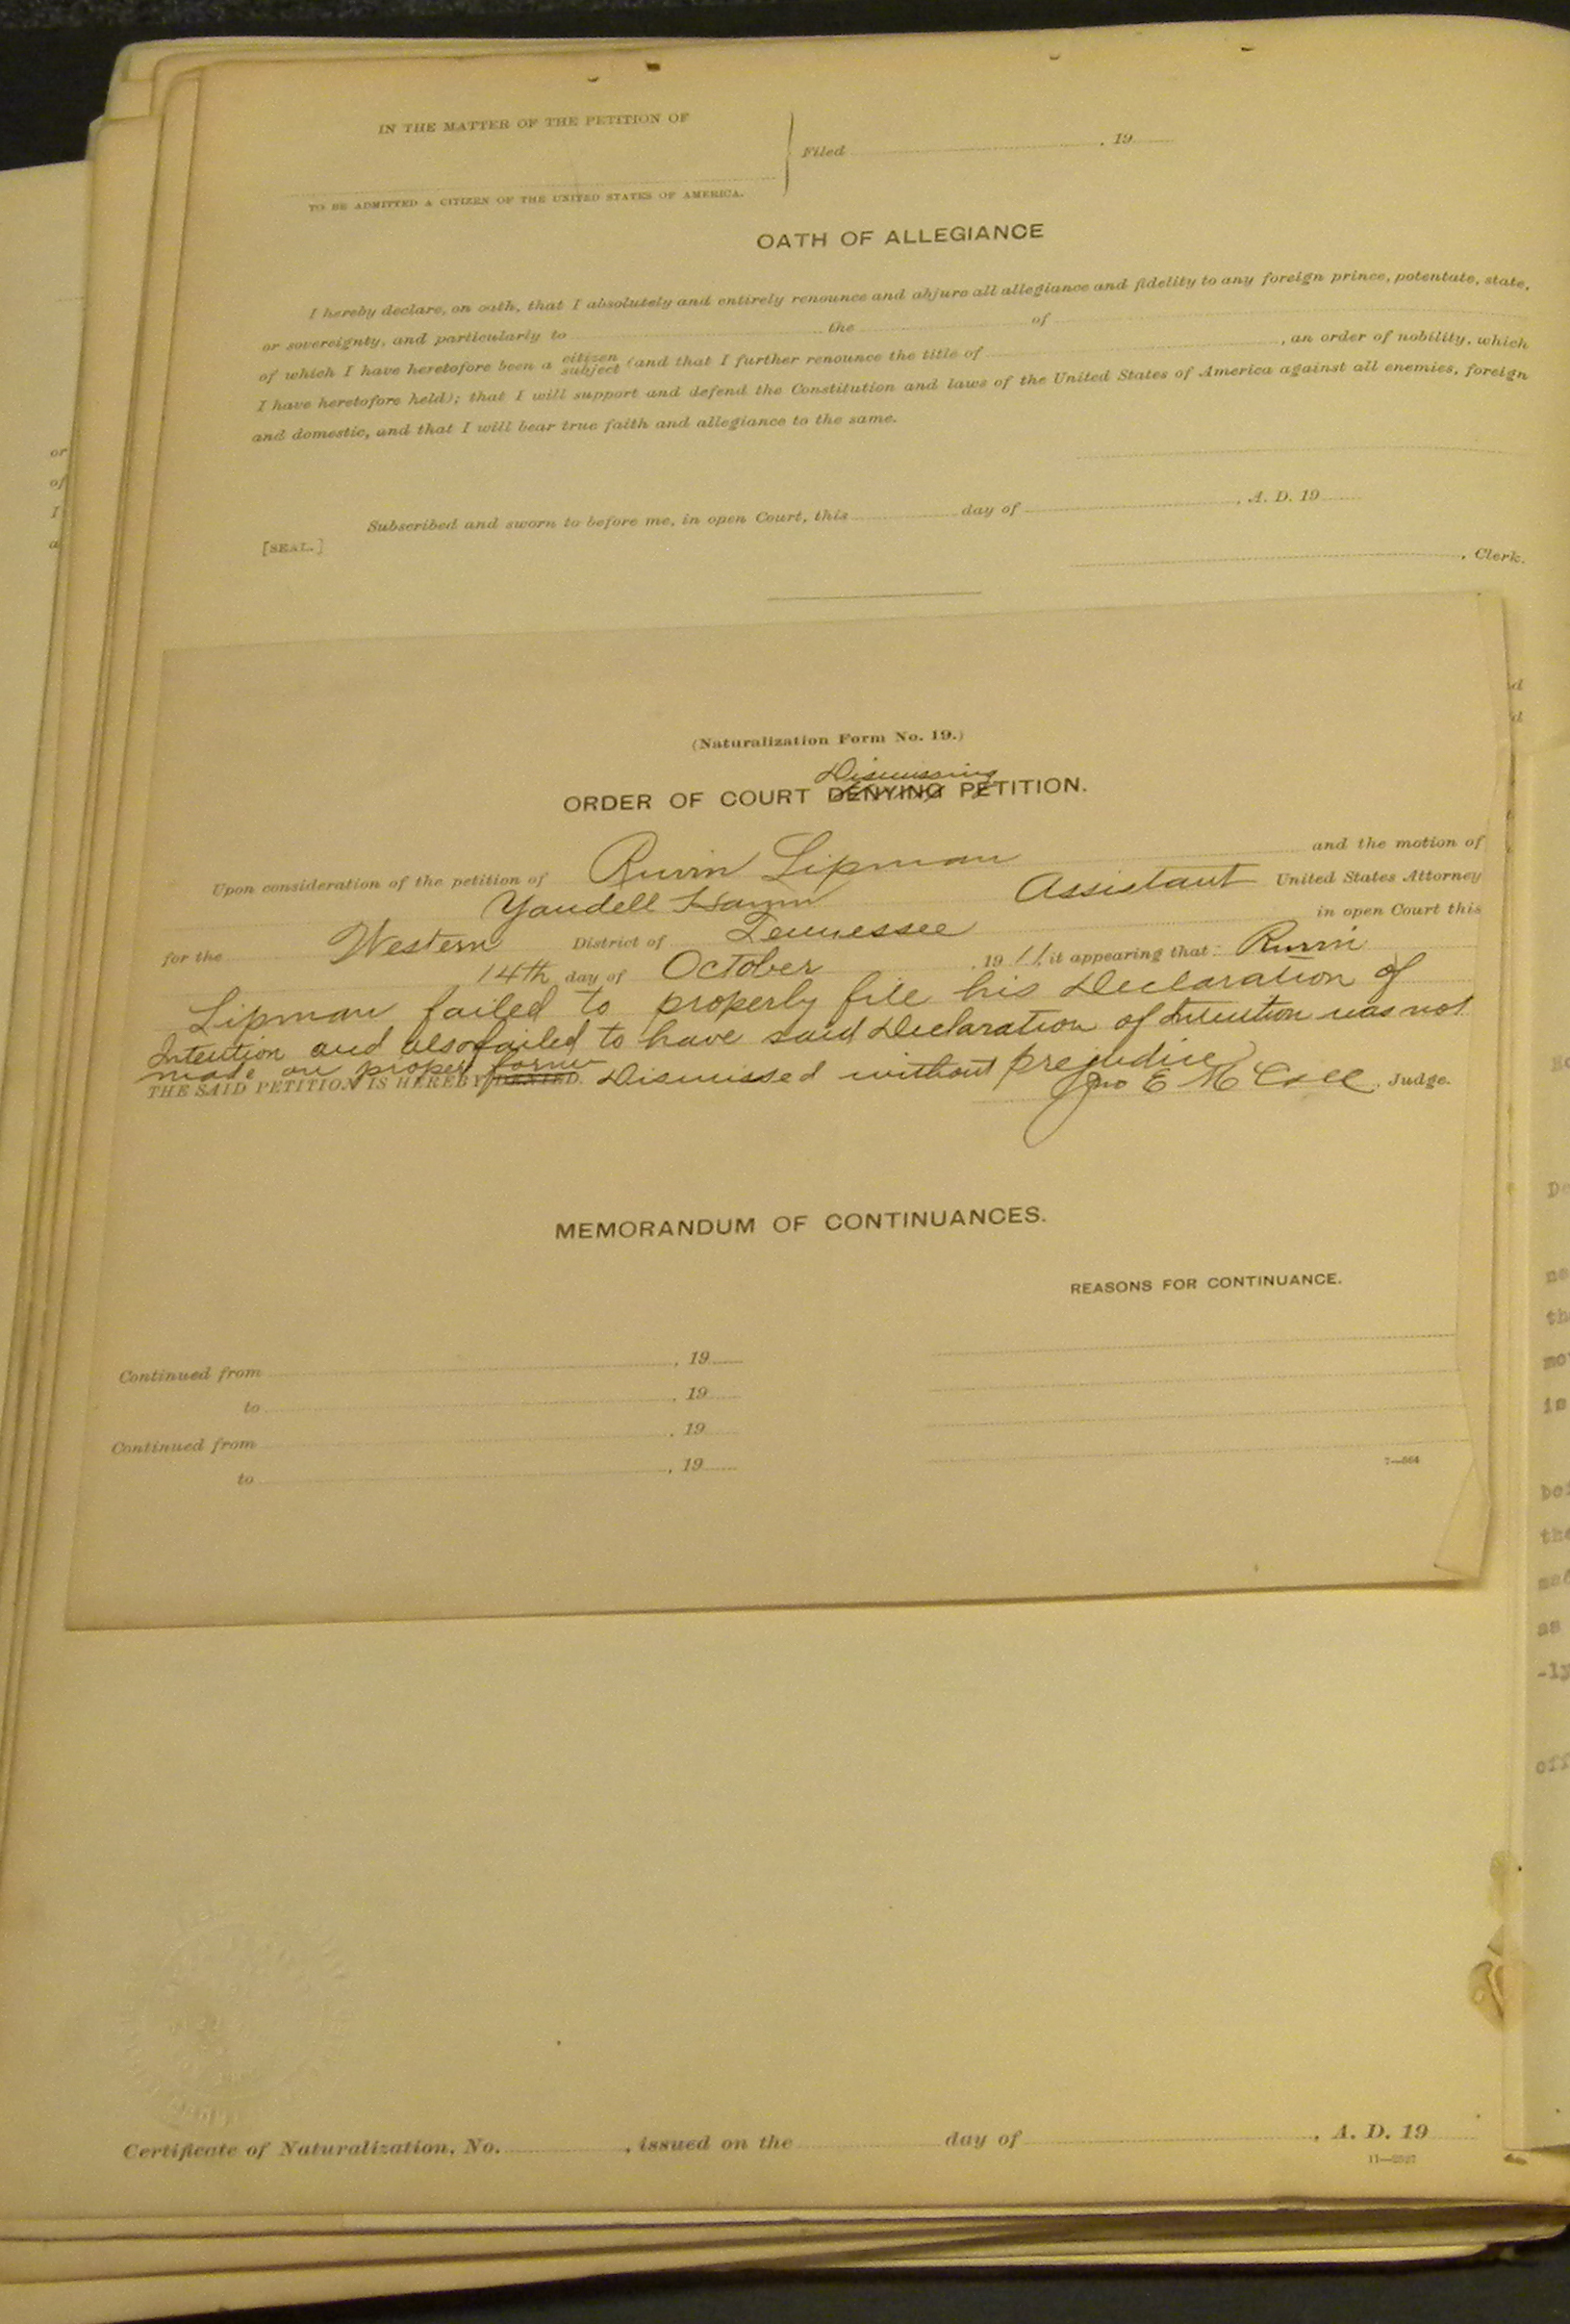 IN THE MATTER OF THE PETITION OF
Filed , 19
TO BE ADMITTED A CITIZEN OF THE UNITED STATES OF AMERICA.
OATH OF ALLEGIANCE
I hereby declare, on oath, that I absolutely and entirely renounce and abjure all allegiance and fidelity to any foreign prince, potentate, state,
or sovereignty, and particularly to the of
of which I have heretofore been a citizen subject (and that I further renounce the title of , an order of nobility, which
I have heretofore held); that I will support and defend the Constitution and laws of the United States of America against all enemies, foreign
and domestic, and that I will bear true faith and allegiance to the same.
Subscribed and sworn to before me, in open Court, this day of , A. D. 19
[SEAL.]
, Clerk.
(Naturalization Form No. 19.)
Dismissing
ORDER OF COURT DENYING PETITION.
Upon consideration of the petition of Ruvin Lipman and the motion of
Yandell Assistant United States Attorney
for the Western District of Tennessee in open Court this
14th day of October , 1911, it appearing that: Ruvin
Lipman failed to properly file his Declaration of
Intention and also failed to have said Declaration of Intention was not
made on proper form
THE SAID PETITION IS HEREBY DENIED. Dismissed without prejudice
Jno E McCall , Judge.
MEMORANDUM OF CONTINUANCES.
REASONS FOR CONTINUANCE.
Continued from , 19
to , 19
Continued from , 19
to , 19
7—864
Certificate of Naturalization, No. , issued on the day of , A. D. 19